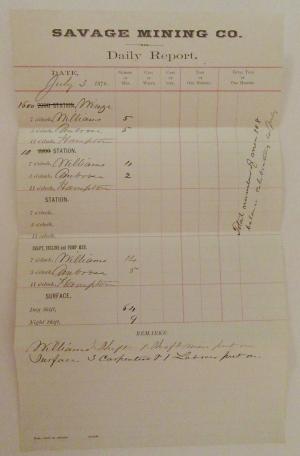 SAVAGE MINING CO.
Daily Report.
DATE,
July 3 187
NUMBER OF MEN.
COST OF WAGES.
TOTAL
1600 STATION,
7 o'clock, Williams 5
3 o'clock, Ambrose 5
11 o'clock, Hampton
10 STATION.
7 o'clock, Williams 4
3 o'clock, Ambrose 2
11 o'clock, Hampton
STATION.
7 o'clock,
3 o'clock,
11 o'clock,
SHAFT, ENGINE and PUMP MEN.
7 o'clock, Williams 14
3 o'clock, Ambrose 5
11 o'clock, Hampton
SURFACE.
Day Shift, 64
Night Shift, 9
Total number of men 108
REMARKS.
Williams Shift 1 Shaft man put on
Surface 3 Carpenters & 1 Laborer put on